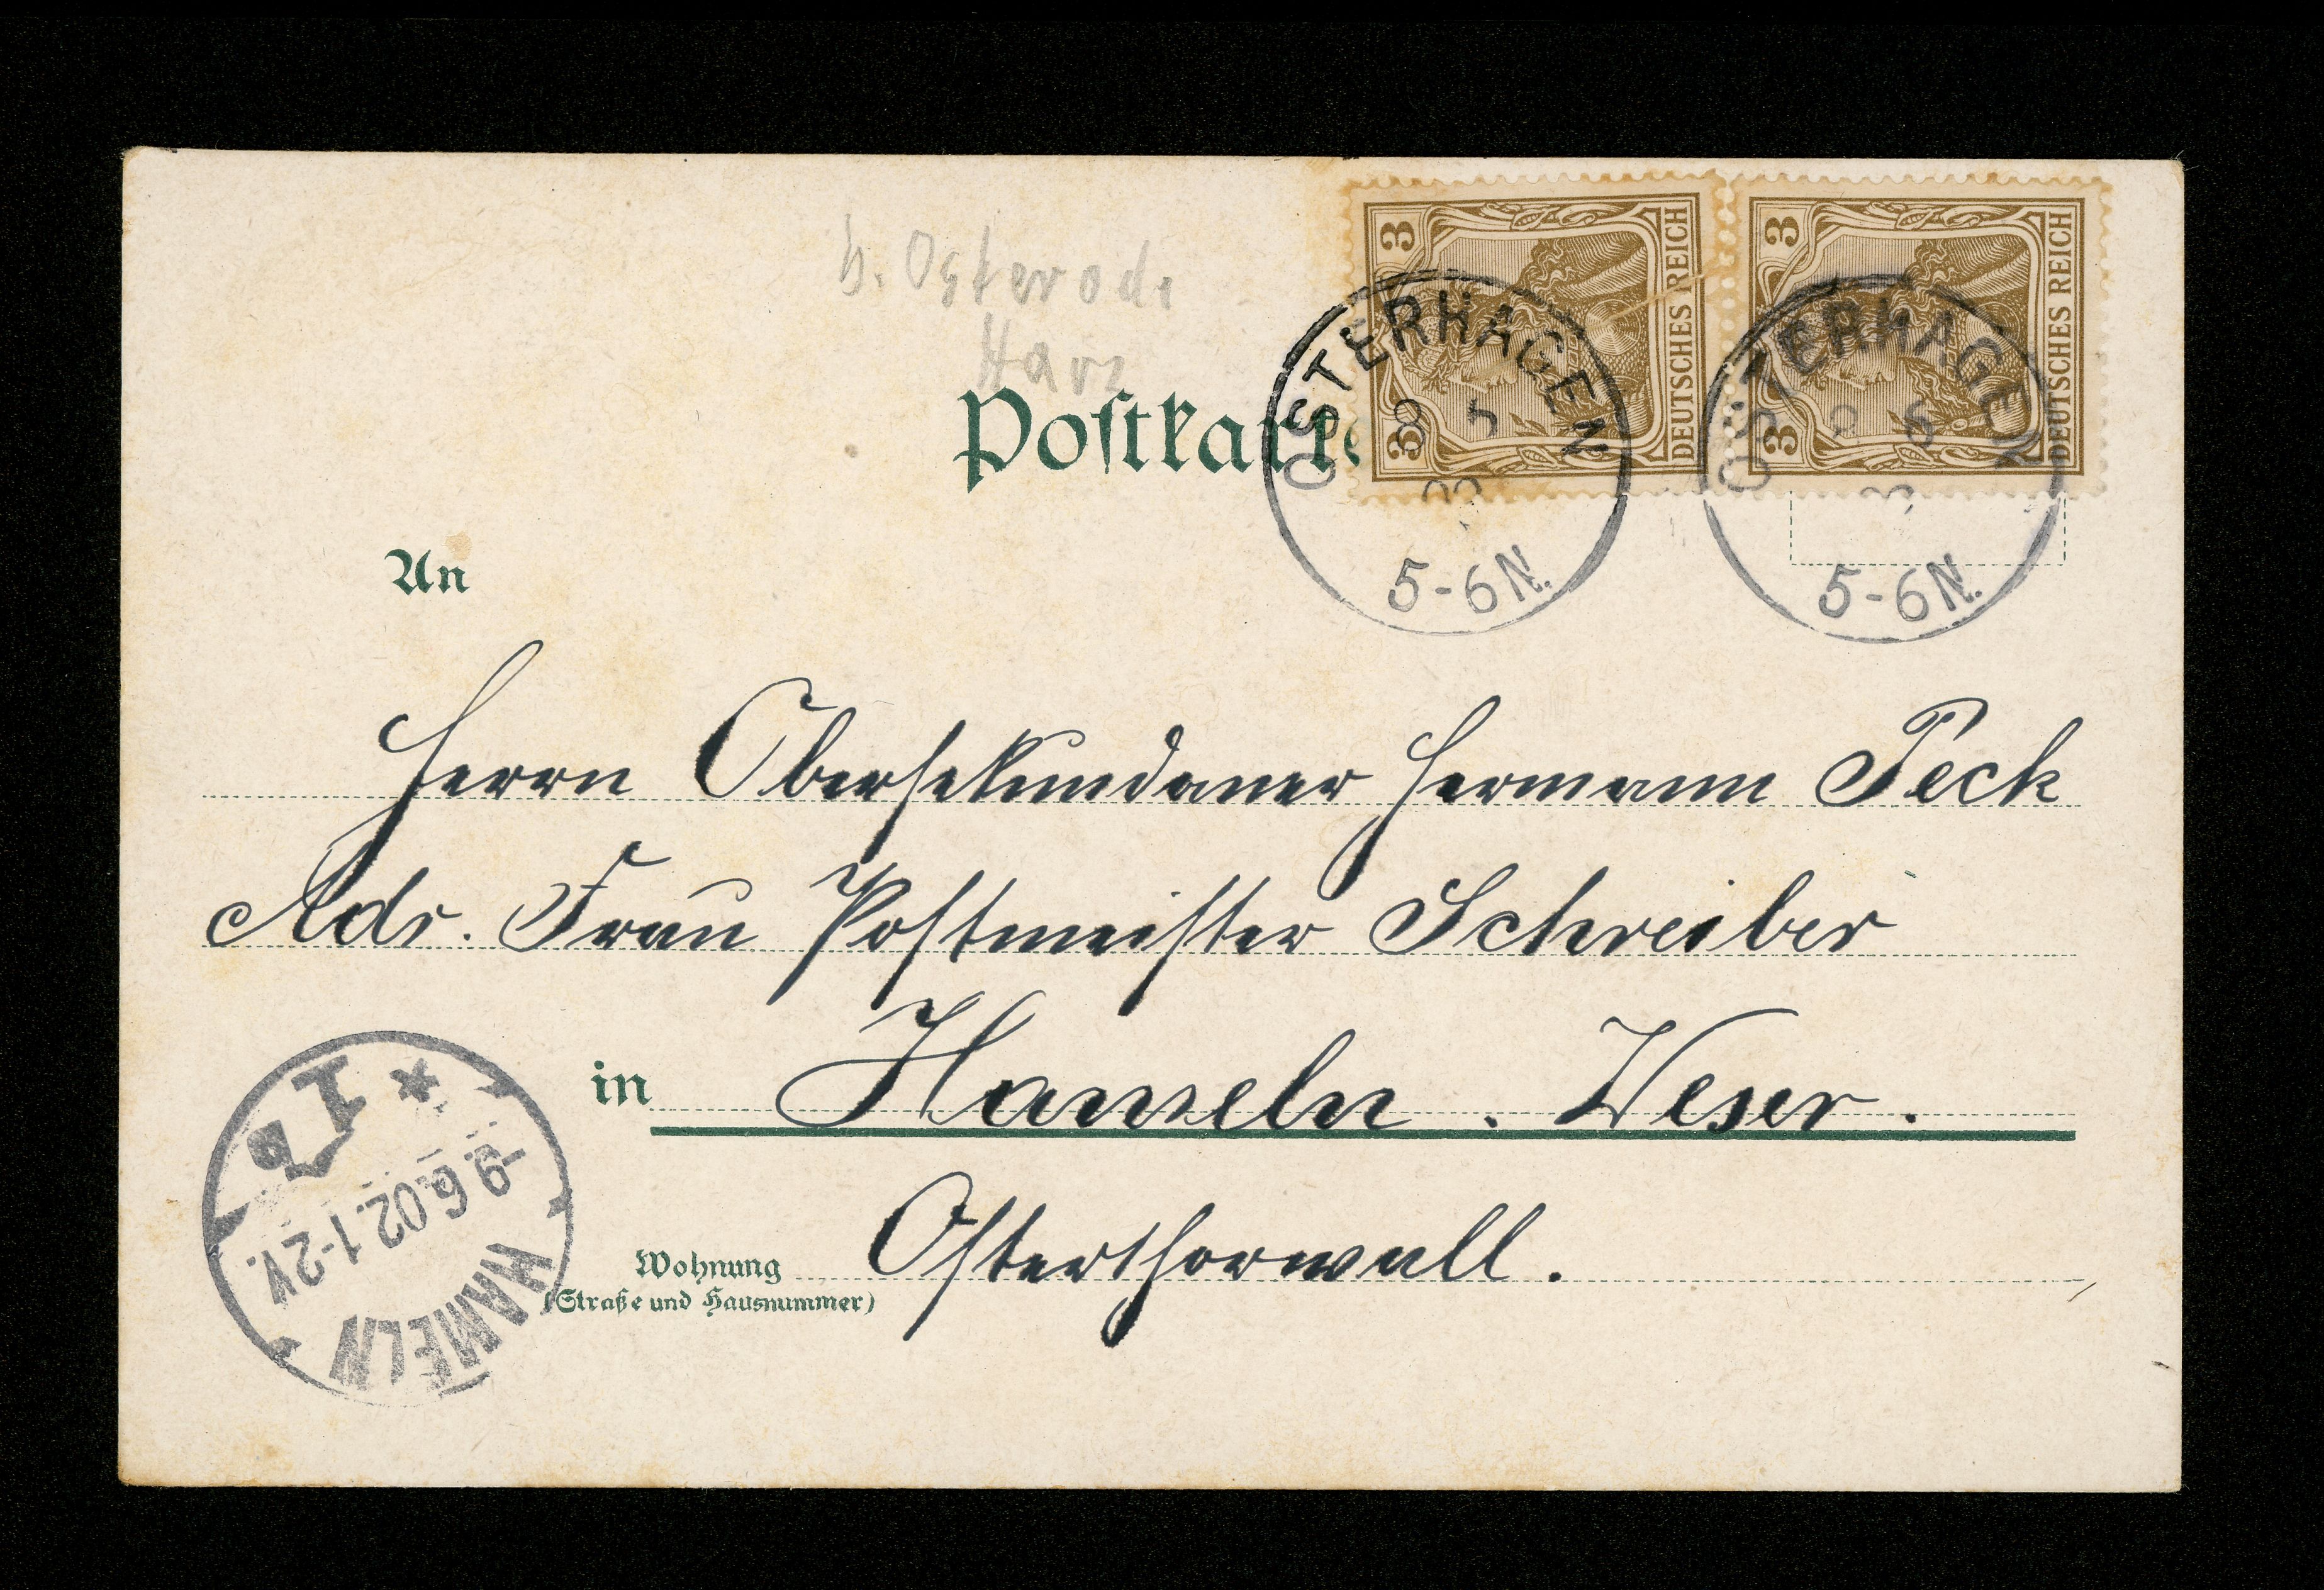 b. Osterode
Harz
Postkarte
3 3 DEUTSCHES REICH
3 3 DEUTSCHES REICH
OSTERHAGEN
8 6
02
5-6N.
OSTERHAGEN
8 6
5-6N.
An
Herrn Obersekundaner Hermann Peck
Adr. Frau Postmeister Schreiber
in Hameln. Weser.
Wohnung Osterthorwall.
(Straße und Hausnummer)
HAMELN
-9.6.02.1-2V.
* 1